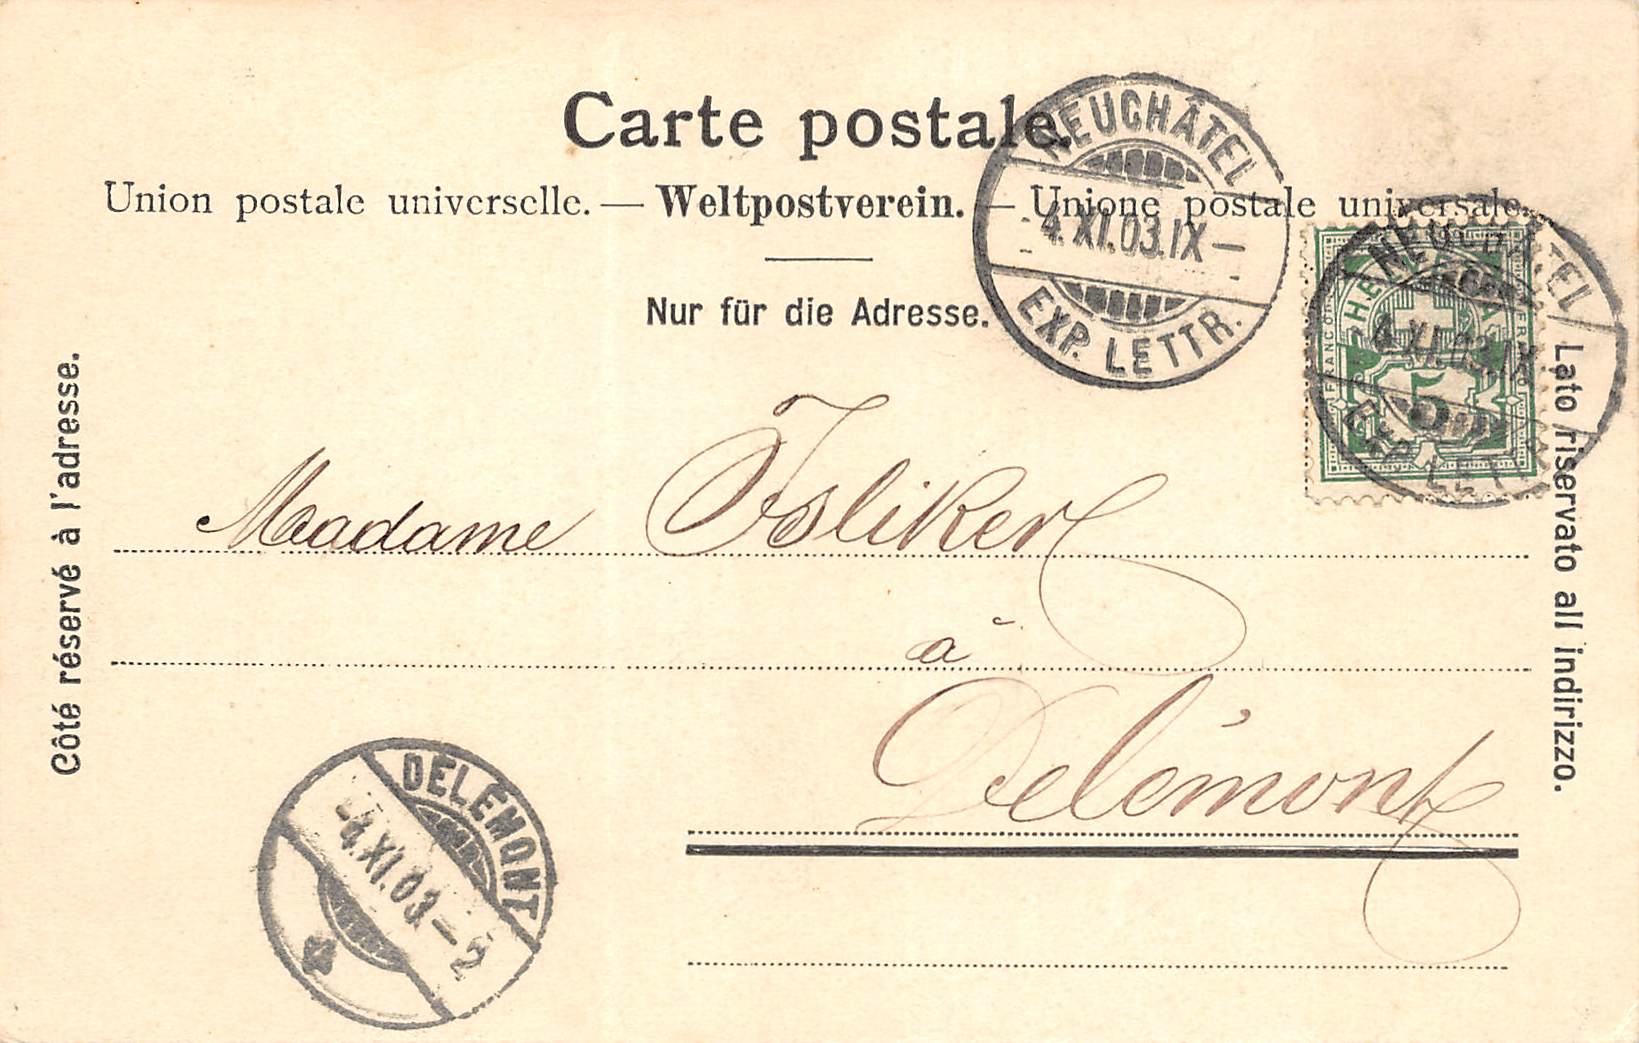 Carte postale.
Union postale universelle. — Weltpostverein. — Unione postale universale.
Nur für die Adresse.
Côté réservé à l'adresse.
Lato riservato all indirizzo.
NEUCHÂTEL
-4.XI.03.IX-
EXP. LETTR.
NEUCHÂTEL
4.XI.03.IX
EXP. LETTR.
FRANCO
HELVETIA
FRANCO
5
Madame Isliker
à
Delémont
DELÉMONT
-4.XI.03-2